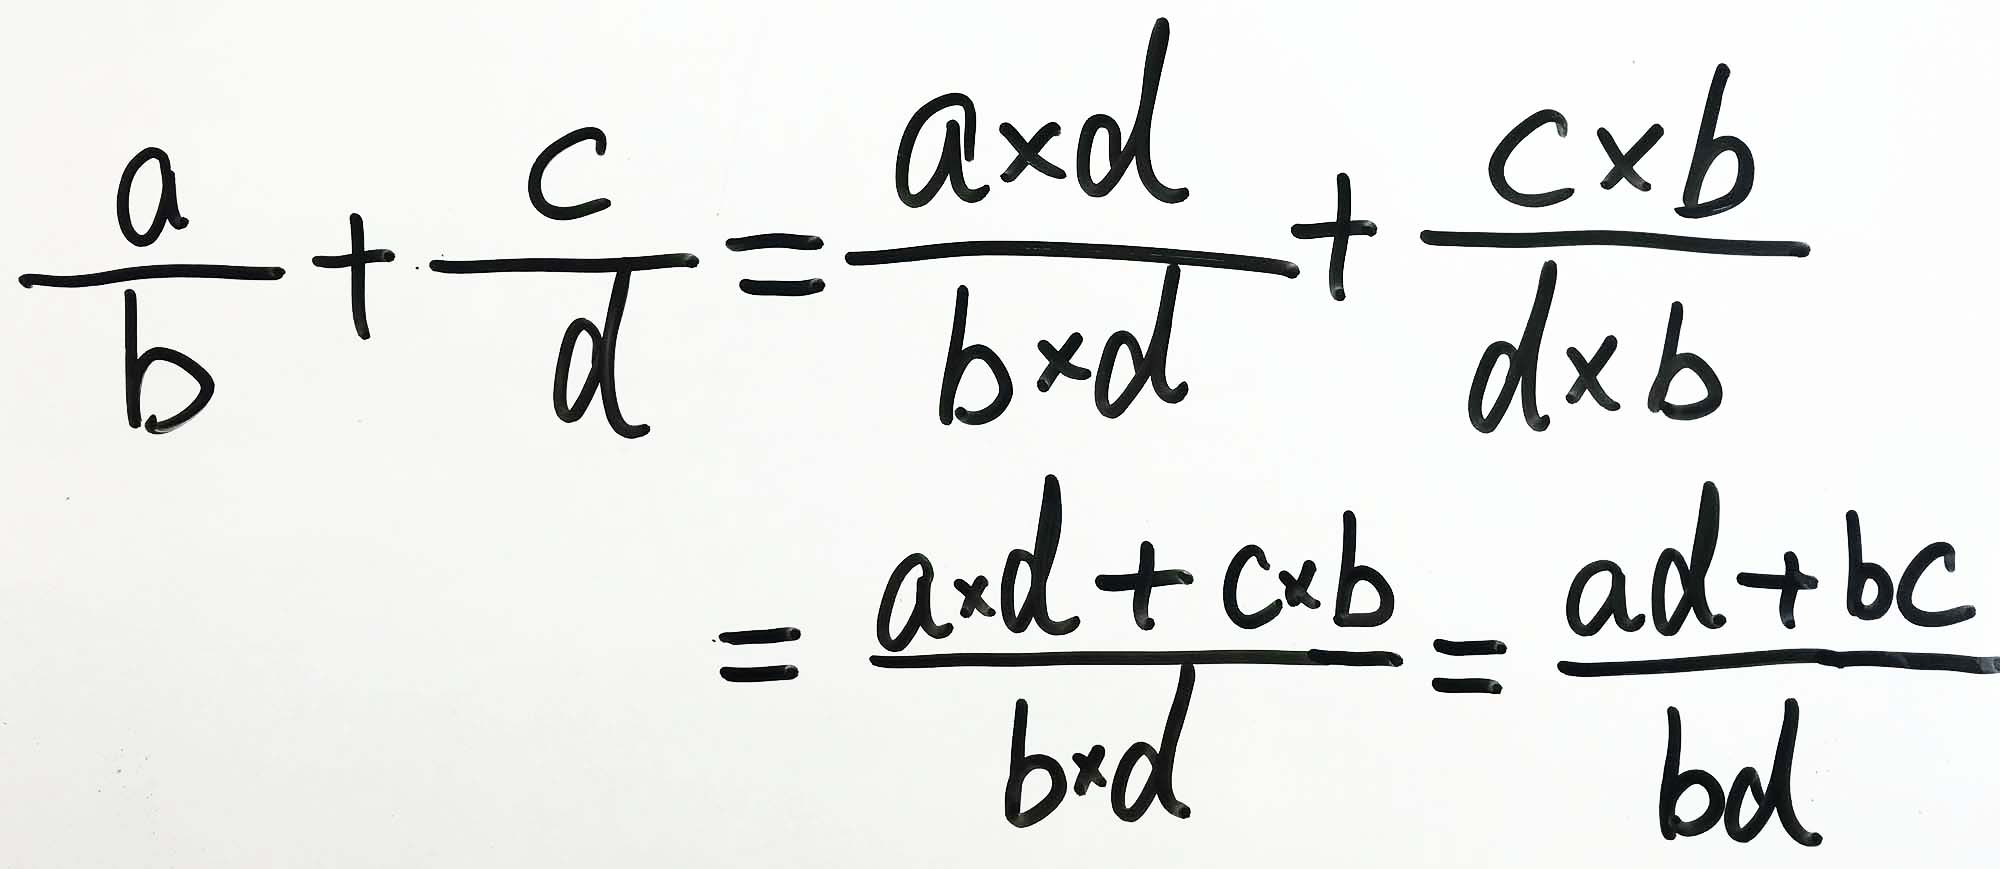 a/b + c/d = a×d/b×d + c×b/d×b
= a×d + c×b/b×d = ad + bc/bd